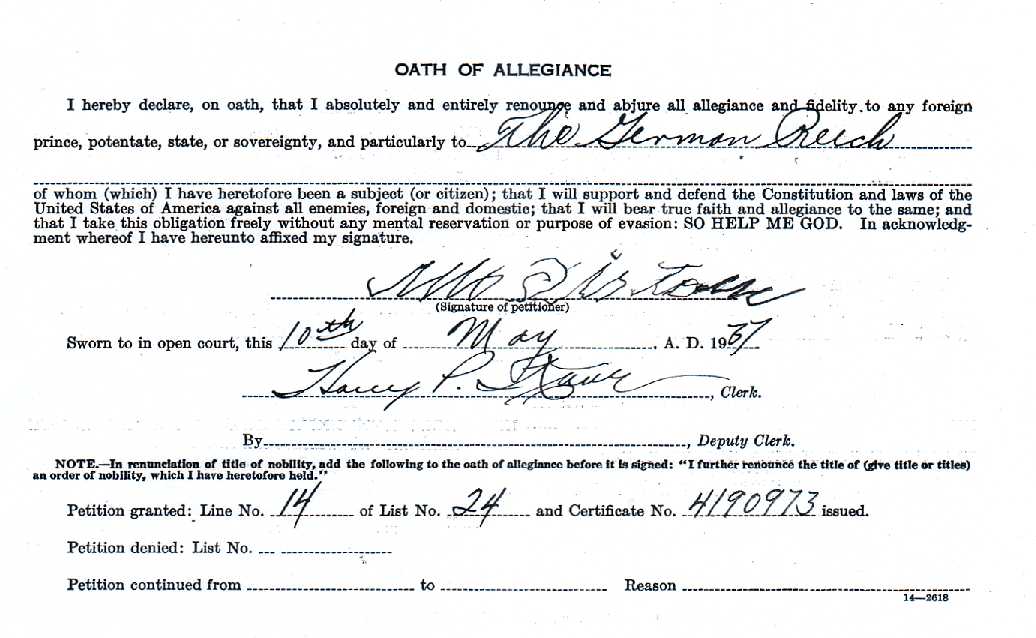 OATH OF ALLEGIANCE
I hereby declare, on oath, that I absolutely and entirely renounce and abjure all allegiance and fidelity to any foreign
prince, potentate, state, or sovereignty, and particularly to The German Reich
of whom (which) I have heretofore been a subject (or citizen); that I will support and defend the Constitution and laws of the
United States of America against all enemies, foreign and domestic; that I will bear true faith and allegiance to the same; and
that I take this obligation freely without any mental reservation or purpose of evasion: SO HELP ME GOD. In acknowledg-
ment whereof I have hereunto affixed my signature.
Otto
(Signature of petitioner)
Sworn to in open court, this 10th day of May, A. D. 1937
Harry P., Clerk.
By, Deputy Clerk.
NOTE.—In renunciation of title of nobility, add the following to the oath of allegiance before it is signed: "I further renounce the title of (give title or titles)
an order of nobility, which I have heretofore held."
Petition granted: Line No. 14 of List No. 24 and Certificate No. 4190973 issued.
Petition denied: List No.
Petition continued from to Reason
14—2618